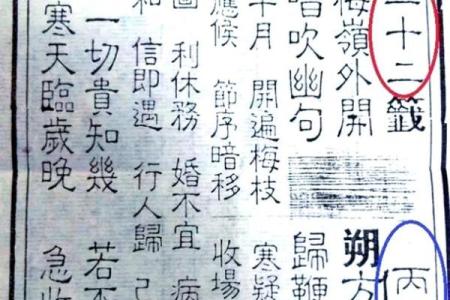 十二籤 丙
梅嶺外開 朔方
唱吹幽句 歸鞭
十月 開遍梅枝 寒疑
應候 節序暗移 收場
圖 利休務 婚不宜 病
和 信即遇 行人歸
一切貴知幾 若不
寒天臨歲晚 急收